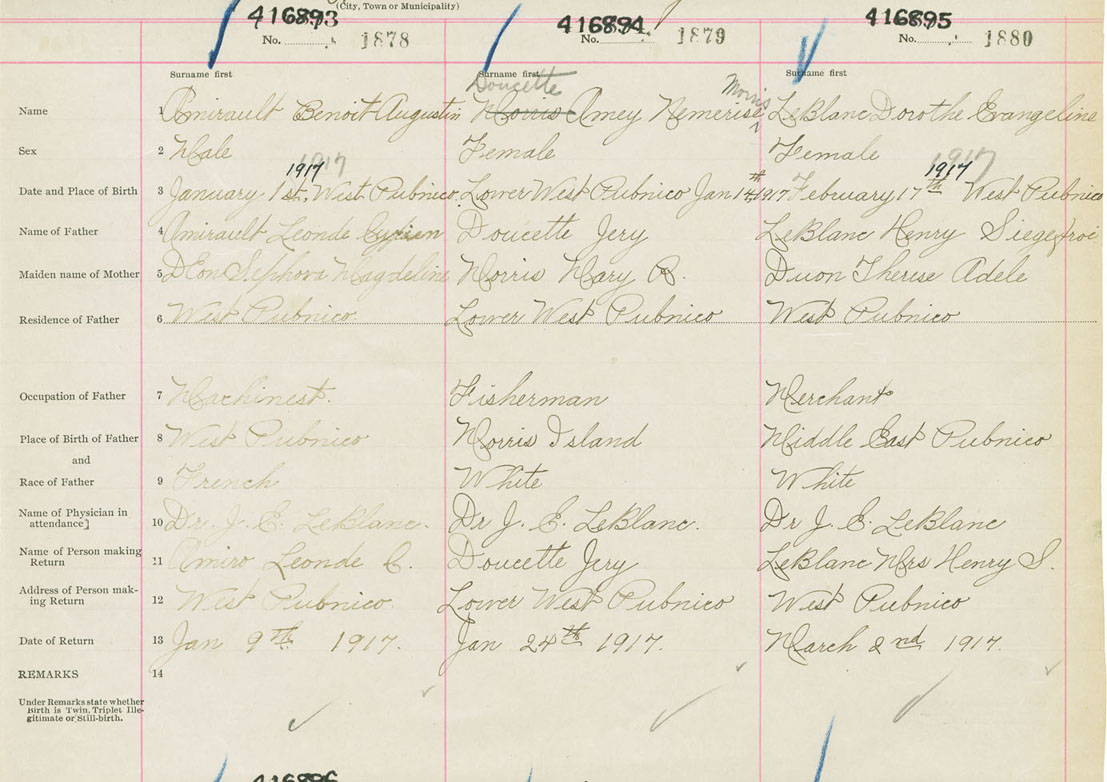 (City, Town or Municipality)
416893 416894 416895
No. 1878 No. 1879 No. 1880
Surname first Surname first Surname first
Doucette Morris
Name 1 Amirault Benoit Augustin Morris Amey Nemerise LeBlanc Dorothe Evangeline
Sex 2 Male Female Female
1917 1917 1917 1917
Date and Place of Birth 3 January 1st. West Pubnico. Lower West Pubnico Jan 14th 1917 February 17th West Pubnico
Name of Father 4 Amirault Leonde Cyrien Doucette Jery LeBlanc Henry Siegefroi
Maiden name of Mother 5 DEon Sephora Magdeline Morris Mary R. Duon Therese Adele
Residence of Father 6 West Pubnico. Lower West Pubnico West Pubnico
Occupation of Father 7 Machinest. Fisherman Merchant
Place of Birth of Father 8 West Pubnico Morris Island Middle East Pubnico
and
Race of Father 9 French White White
Name of Physician in
attendance] 10 Dr. J. E. LeBlanc. Dr J. E. LeBlanc. Dr J. E. LeBlanc
Name of Person making
Return 11 Amiro Leonde C. Doucette Jery LeBlanc Mrs Henry S.
Address of Person mak-
ing Return 12 West Pubnico. Lower West Pubnico West Pubnico
Date of Return 13 Jan 9th. 1917. Jan 24th 1917. March 2nd 1917.
REMARKS 14
Under Remarks state whether
Birth is Twin, Triplet Ille-
gitimate or Still-birth.
416896